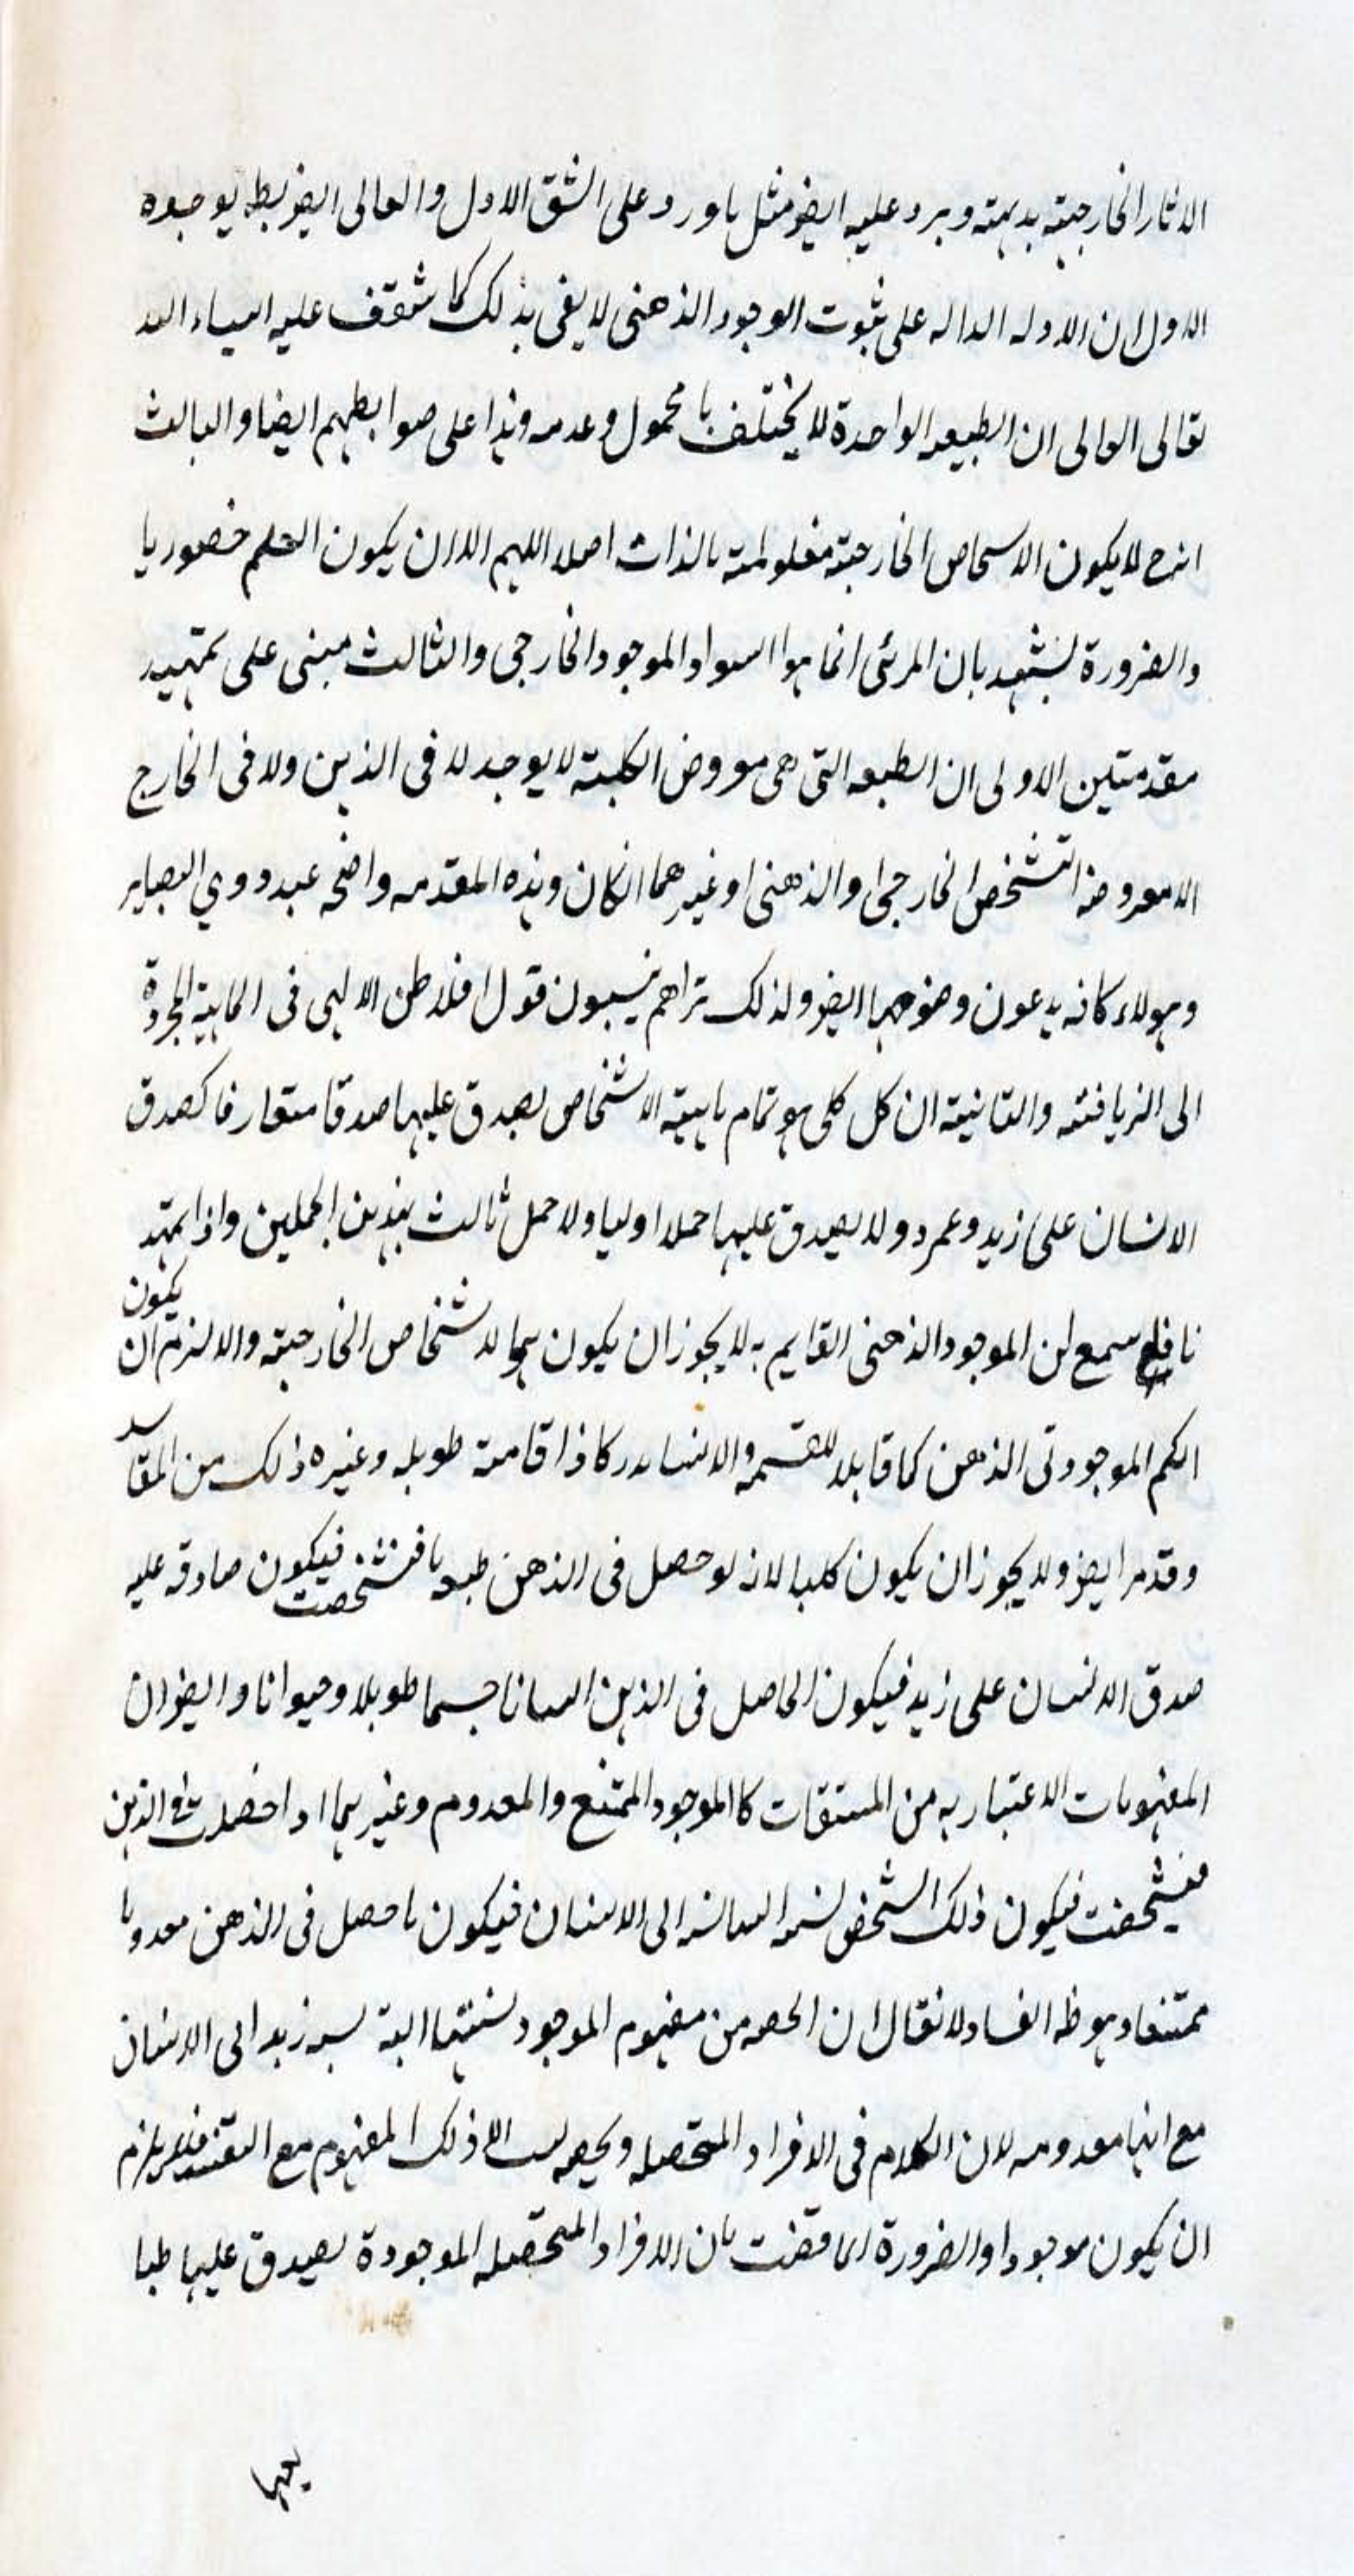 الاثار الخارجية بديهته ويرد عليه ايضو مثل ماورد على الشق الاول والتالى ايضو بط بوجوه
الاول ان الادله الداله على ثبوت الوجود الذهنى لا يفى بذلك كما ستقف عليه انساء الله
تعالى التالى ان الطبيعه الواحدة لا يختلف بالمحمول وعدمه وهذا على ضوابطهم ايضا والثالث
انه ح لا يكون الاشخاص الخارجية معلومة بالذات اصلا اللهم الا ان يكون العلم حضوريا
والضرورة يشهد بان المرئى انما هو السواد الموجود الخارجى والثالث مبنى على تمهيد
مقدمتين الاولى ان الطبعه التى هى معروض الكلية لا يوجد لا فى الذهن ولا فى الخارج
الا معروضه التشخص الخارجى او الذهنى او غيرهما انكان وهذه المقدمه واضحه عند ذوي البصاير
وهولاء كافه يدعون وضوحها ايضو ولذلك تراهم ينسبون قول افلاطن الالهى فى الماهية المجردة
الى الزيافته والثانية ان كل كلى هو تمام ماهية الاشخاص يصدق عليها صدقا متعارفا كصدق
الانسان على زيد وعمرو ولا يصدق عليها حملا اوليا ولا حمل ثالث بهذين الحملين واذا تمهد
نا فاسمع ان الموجود الذهنى القايم به لا يجوز ان يكون هو الاشخاص الخارجية والا لزم ان يكون
الكم الموجود فى الذهن كما قابلا للقسمه والانسان مدركا ذا قامة طويله وغيره ذلك من المفاسد
وقد مر ايضو ولا يجوز ان يكون كليا لانه لو حصل فى الذهن طبعه ما فتشخصت فيكون صادقه عليه
صدق الانسان على زيد فيكون الحاصل فى الذهن انسانا جسما طويلا وحيوانا وايضو ان
المفهومات الاعتباريه من المشتقات كالموجود الممتنع والمعدوم وغيرها اذا حصلت فى الذهن
فتشخصت فيكون ذلك الشخص نسبه انسانه الى الانسان فيكون ما حصل فى الذهن معدوما
ممتنعا وهو ظ الفساد لا نقال ان الحصه من مفهوم الموجود نسبتها اليه نسبه زيد الى الانسان
مع انها معدومه لان الكلام فى الافراد المتحصله والحصه ليست الا ذلك المفهوم مع التقييد فلا يلزم
ان يكون موجودا والضرورة انما قضت بان الافراد المتحصله الموجودة يصدق عليها طبا
يعها